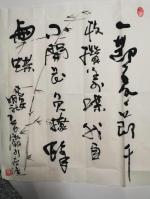 一節復一節千
枝攢萬葉我自
不開花免撩蜂
與蝶